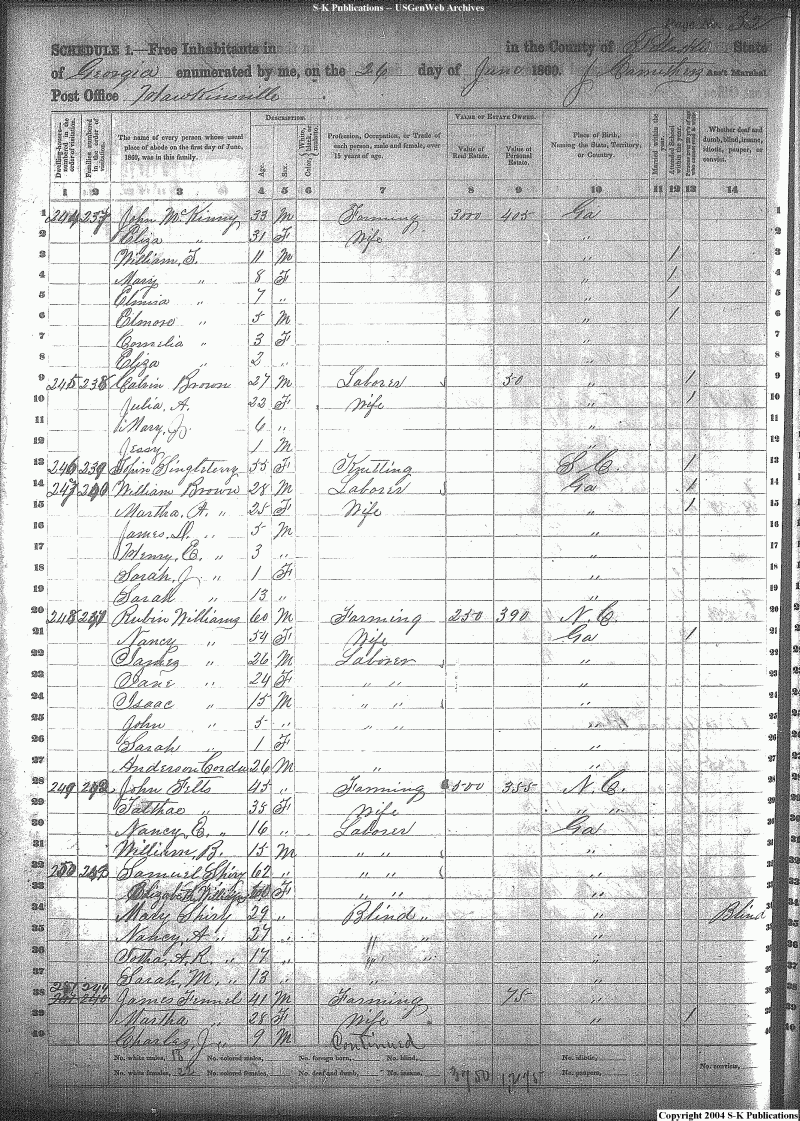 S-K Publications -- USGenWeb Archives
Page No. 32
SCHEDULE 1.—Free Inhabitants in in the County of Pulaski State
of Georgia enumerated by me, on the 26 day of June 1860. Ass't Marshal
Post Office Hawkinsville
Dwelling-houses—numbered in the order of visitation.
Families numbered in the order of visitation.
The name of every person whose usual place of abode on the first day of June, 1860, was in this family.
DESCRIPTION.
Age.
Sex.
Color, White, black, or mulatto.
Profession, Occupation, or Trade of each person, male and female, over 15 years of age.
VALUE OF ESTATE OWNED.
Value of Real Estate.
Value of Personal Estate.
Place of Birth, Naming the State, Territory, or Country.
Married within the year.
Attended School within the year.
Whether deaf and dumb, blind, insane, idiotic, pauper, or convict.
1 2 3 4 5 6 7 8 9 10 11 12 13 14
1 244 237 John McKinny 33 M Farming 3000 405 Ga 1
2 Eliza " 31 F Wife 2
3 William, T. 11 M 1 3
4 Mary " 8 F " 1 4
5 Elmira " 7 " " 1 5
6 Elmore " 5 M " 1 6
7 Cornelia " 3 F " 7
8 Eliza " 2 " " 8
9 245 238 Calvin Brown 27 M Laborer 50 " 1 9
10 Julia, A. 22 F Wife " 1 10
11 Mary, J. 6 " " 11
12 Jessy 1 M " 12
13 246 239 Singleterry 55 F Knitting S.C. 1 13
14 247 240 William Brown 28 M Laborer Ga 1 14
15 Martha, A. " 25 F Wife 1 15
16 James, D. " 5 M " 16
17 Henry, E. " 3 " " 17
18 Sarah, J. " 1 F " 18
19 Sarah " 13 " " 19
20 248 241 Rubin Williams 60 M Farming 250 390 N.C. 20
21 Nancy " 54 F Wife Ga 1 21
22 James " 26 M Laborer " 22
23 Jane " 24 F " " " 23
24 Isaac " 15 M " " " 24
25 John " 5 " " " " 25
26 Sarah " 1 F " 26
27 Anderson 26 M " " 27
28 249 242 John Fitts 45 " Farming 500 355 N.C. 28
29 35 F Wife " " 29
30 Nancy, E. " 16 " Laborer Ga 30
31 William, B. 15 M " " " 31
32 250 243 Samuel Shiry 62 " " " " 32
33 Elizabeth William F " " " 33
34 Mary Shirly 29 " Blind " " Blind 34
35 Nancy, A " 27 " " " " 35
36 A.R. " 17 " " " " 36
37 Sarah, M. " 13 " " " 37
38 251 244 James Fennel 41 M Farming 75 " 38
39 Martha " 28 F Wife " 1 39
40 Charley, J. " 9 M Continued 40
No. white males, 18 No. colored males, No. foreign born, No. blind, No. idiotic,
No. white females, 22 No. colored females, No. deaf and dumb, No. insane, 3750 1,275 No. paupers, No. convicts,
Copyright 2004 S-K Publications